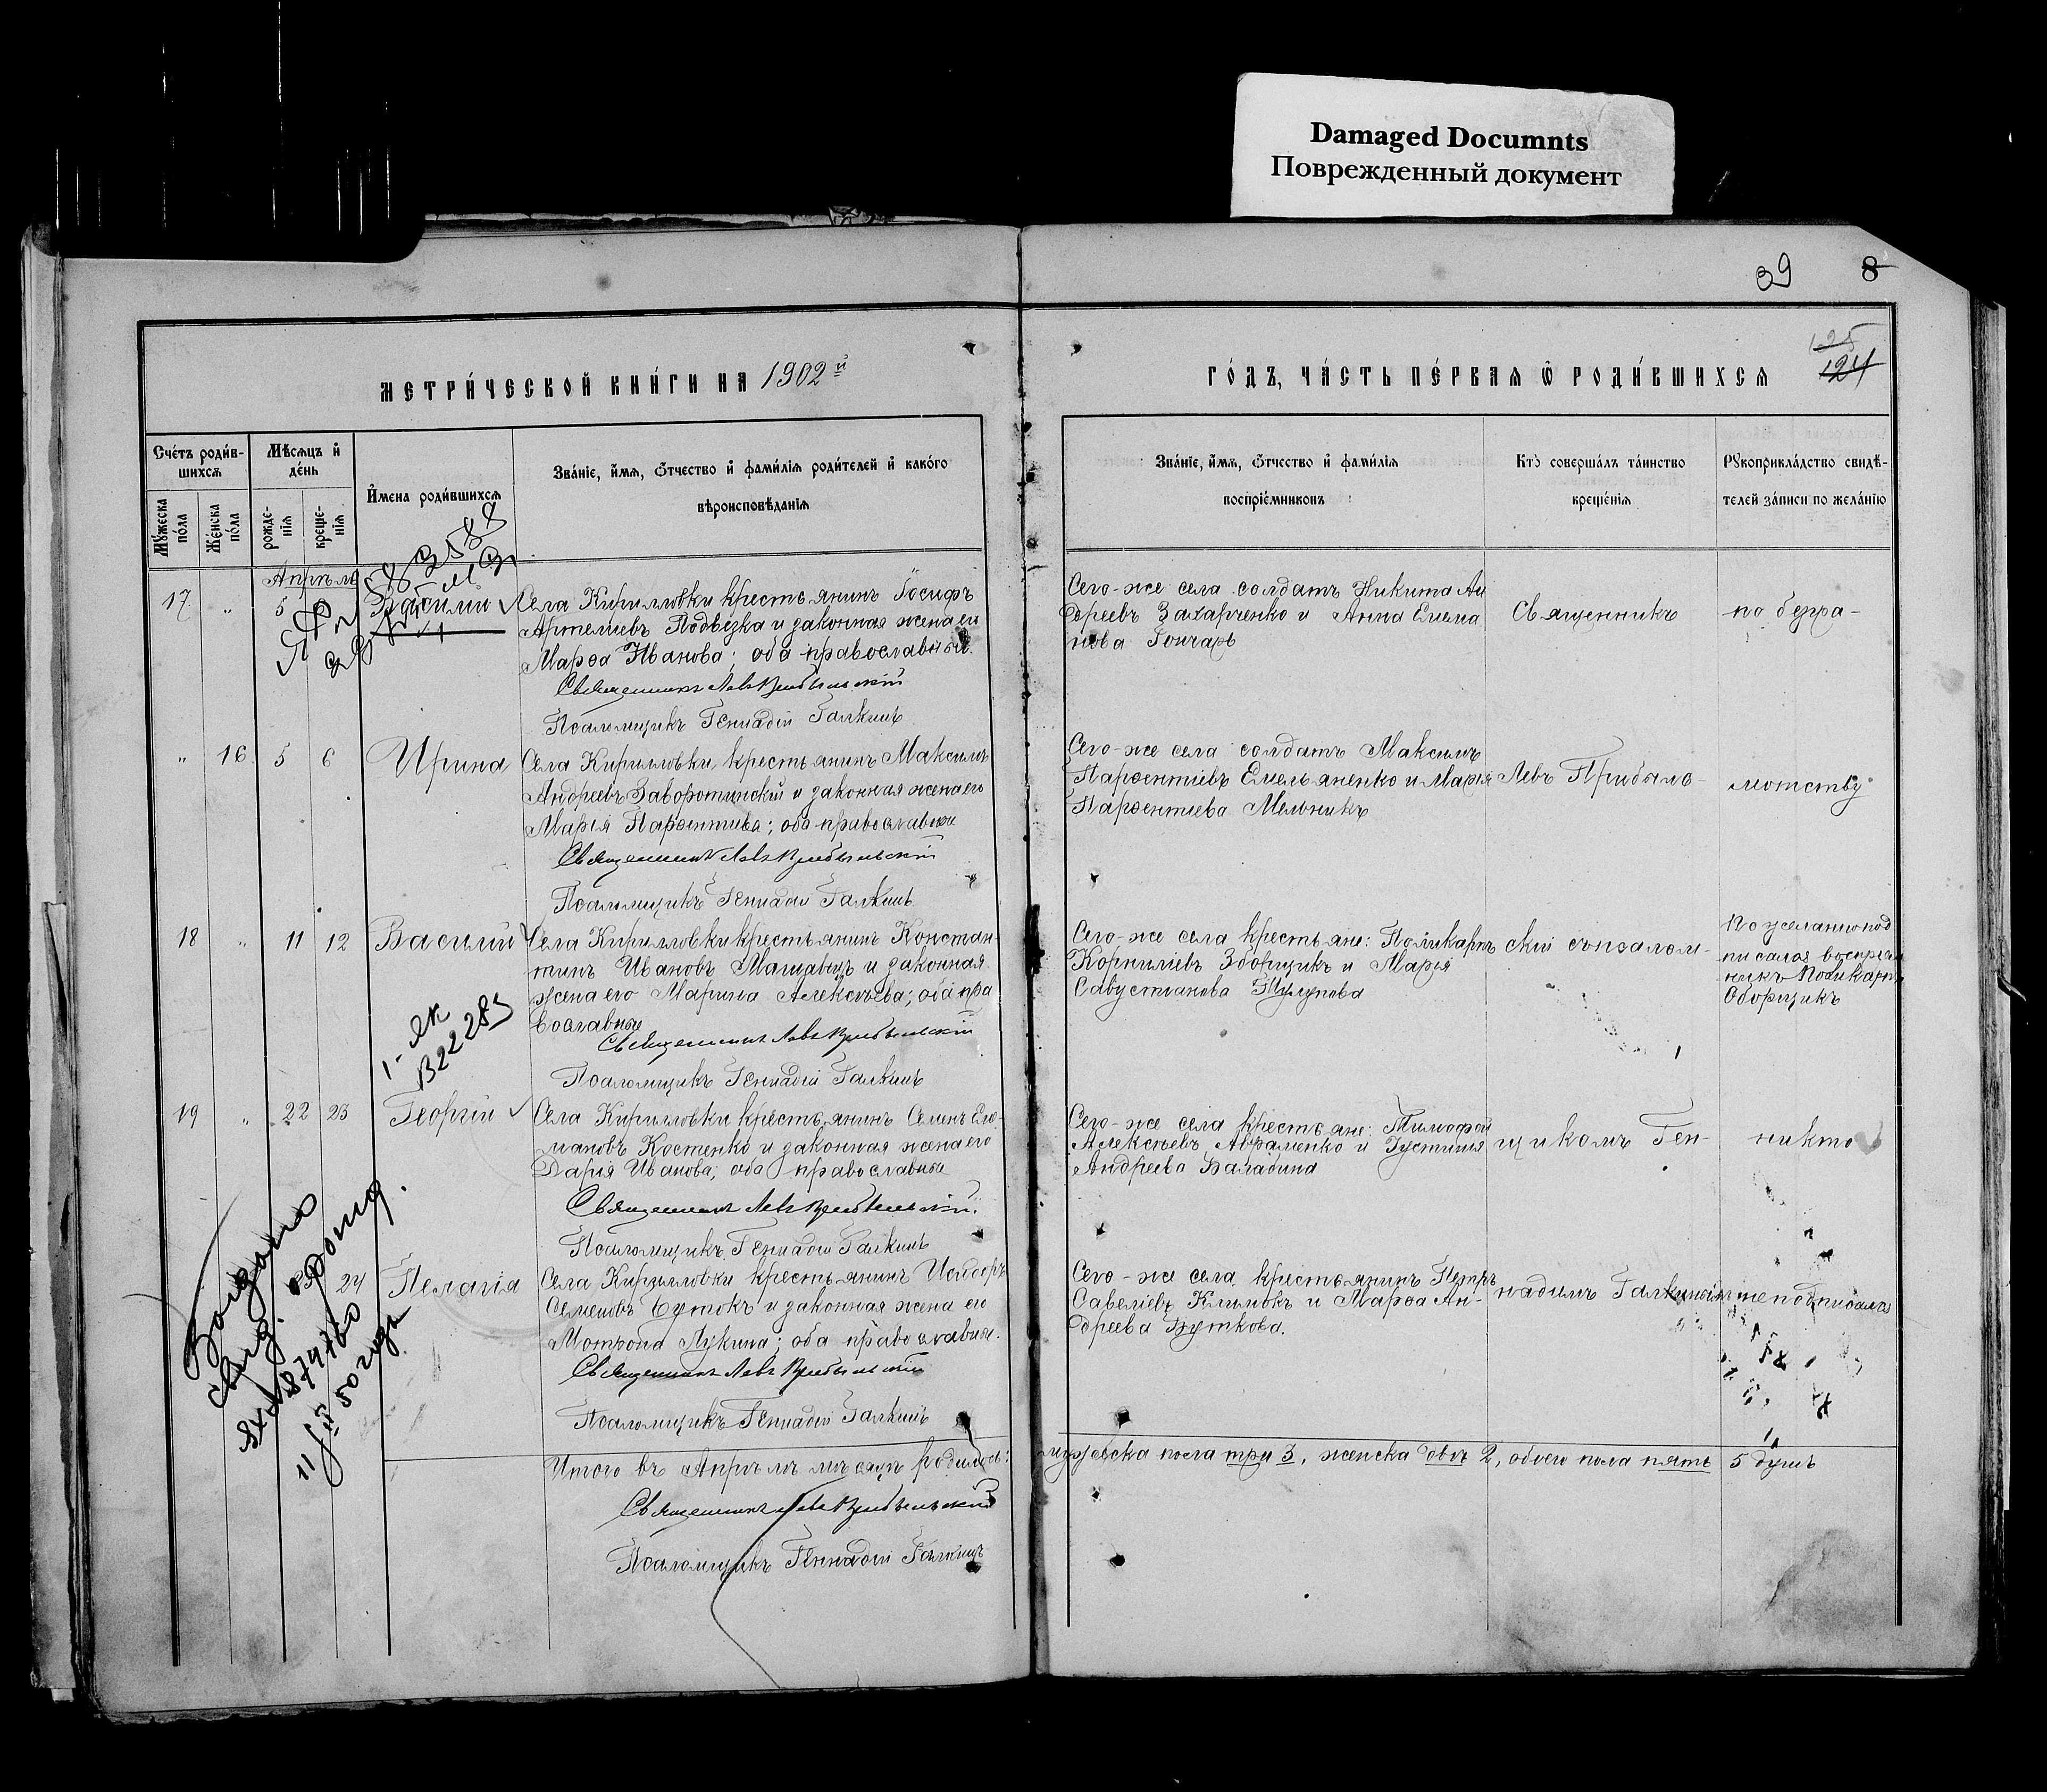 Damaged Documnts
Поврежденный документ
39 8
125
124
МЕТРИ́ЧЕСКОЙ КНИ́ГИ НА 1902 й
ГО́ДЪ, ЧА́СТЬ ПЕ́РВАЯ Ѡ РОДИ́ВШИХСЯ
Сче́тъ роди́в-
шихся
Му́жеска по́ла
Же́нска по́ла
Мѣ́сяцъ и де́нь
рожде́-
нїя
креще́-
нїя
Имена роди́вшихся
Зва́нїе, и́мя, о́тчество и фами́лїя роди́телей и како́го
вѣроисповѣ́данїя
Зва́нїе, и́мя, о́тчество и фами́лїя
воспрїе́мниковъ
Кто̀ соверша́лъ та́инство
креще́нїя
Рукоприкла́дство свидѣ́-
телей за́писи по жела́нїю
Апрѣль
17 " 5
Василій
Села Кирилловки крестьянинъ Іосифъ
Артеміевъ Подвезка и законная жена его
Марѳа Иванова; оба православные.
Священникъ Левъ Прибыльскій
Псаломщикъ Геннадій Галкинъ
Сего-же села солдатъ Никита Ан
дреевъ Захарченко и Анна Емелья
нова Гончаръ
Священникъ
по безгра-
" 16 5 6 Ирина
Села Кирилловки крестьянинъ Максимъ
Андреевъ Заворотинскій и законная жена его
Марія Парѳентіева; оба православные
Священникъ Левъ Прибыльскій
Псаломщикъ Геннадій Галкинъ
Сего-же села солдатъ Максимъ
Парѳентіевъ Емельяненко и Марія
Парѳентіева Мельникъ
Левъ Прибыль-
мотству
18 " 11 12 Василій
Села Кирилловки крестьянинъ Констан-
тинъ Ивановъ и законная
жена его Марина Алексѣева; оба пра
вославные
Священникъ Левъ Прибыльскій
Псаломщикъ Геннадій Галкинъ
Сего-же села крестьяне: Поликарпъ
Корниліевъ Зборщикъ и Марія
Савустіанова
скій съ псалом-
По желанію под
писался воспріем
никъ Поликарпъ
Сборщикъ
1-ЯК
В22285
19 " 22 23 Георгій
Села Кирилловки крестьянинъ
Костенко и законная жена его
Дарія Иванова; оба православные
Священникъ Левъ Прибыльскій
Псаломщикъ Геннадій Галкинъ
Сего-же села крестьяне: Тимофей
Алексѣевъ Авраменко и Іустинія
Андреева Баладина
щикомъ Ген-
никто
24 Пелагія
Села Кирилловки крестьянинъ Исидоръ
Семеновъ и законная жена его
Мотрона Лукина; оба православные.
Священникъ Левъ Прибыльскій
Псаломщикъ Геннадій Галкинъ
Сего-же села крестьянинъ Петръ
Савеліевъ Климокъ и Марѳа Ан-
дреева Буткова.
надіемъ Галкинымъ
не подписался
11/IV 50 года
Итого въ Апрѣлѣ мѣсяцѣ родилось:
мужеска пола три 3, женска двѣ 2, обоего пола пять 5 душъ
Священникъ Левъ Прибыльскій
Псаломщикъ Геннадій Галкинъ